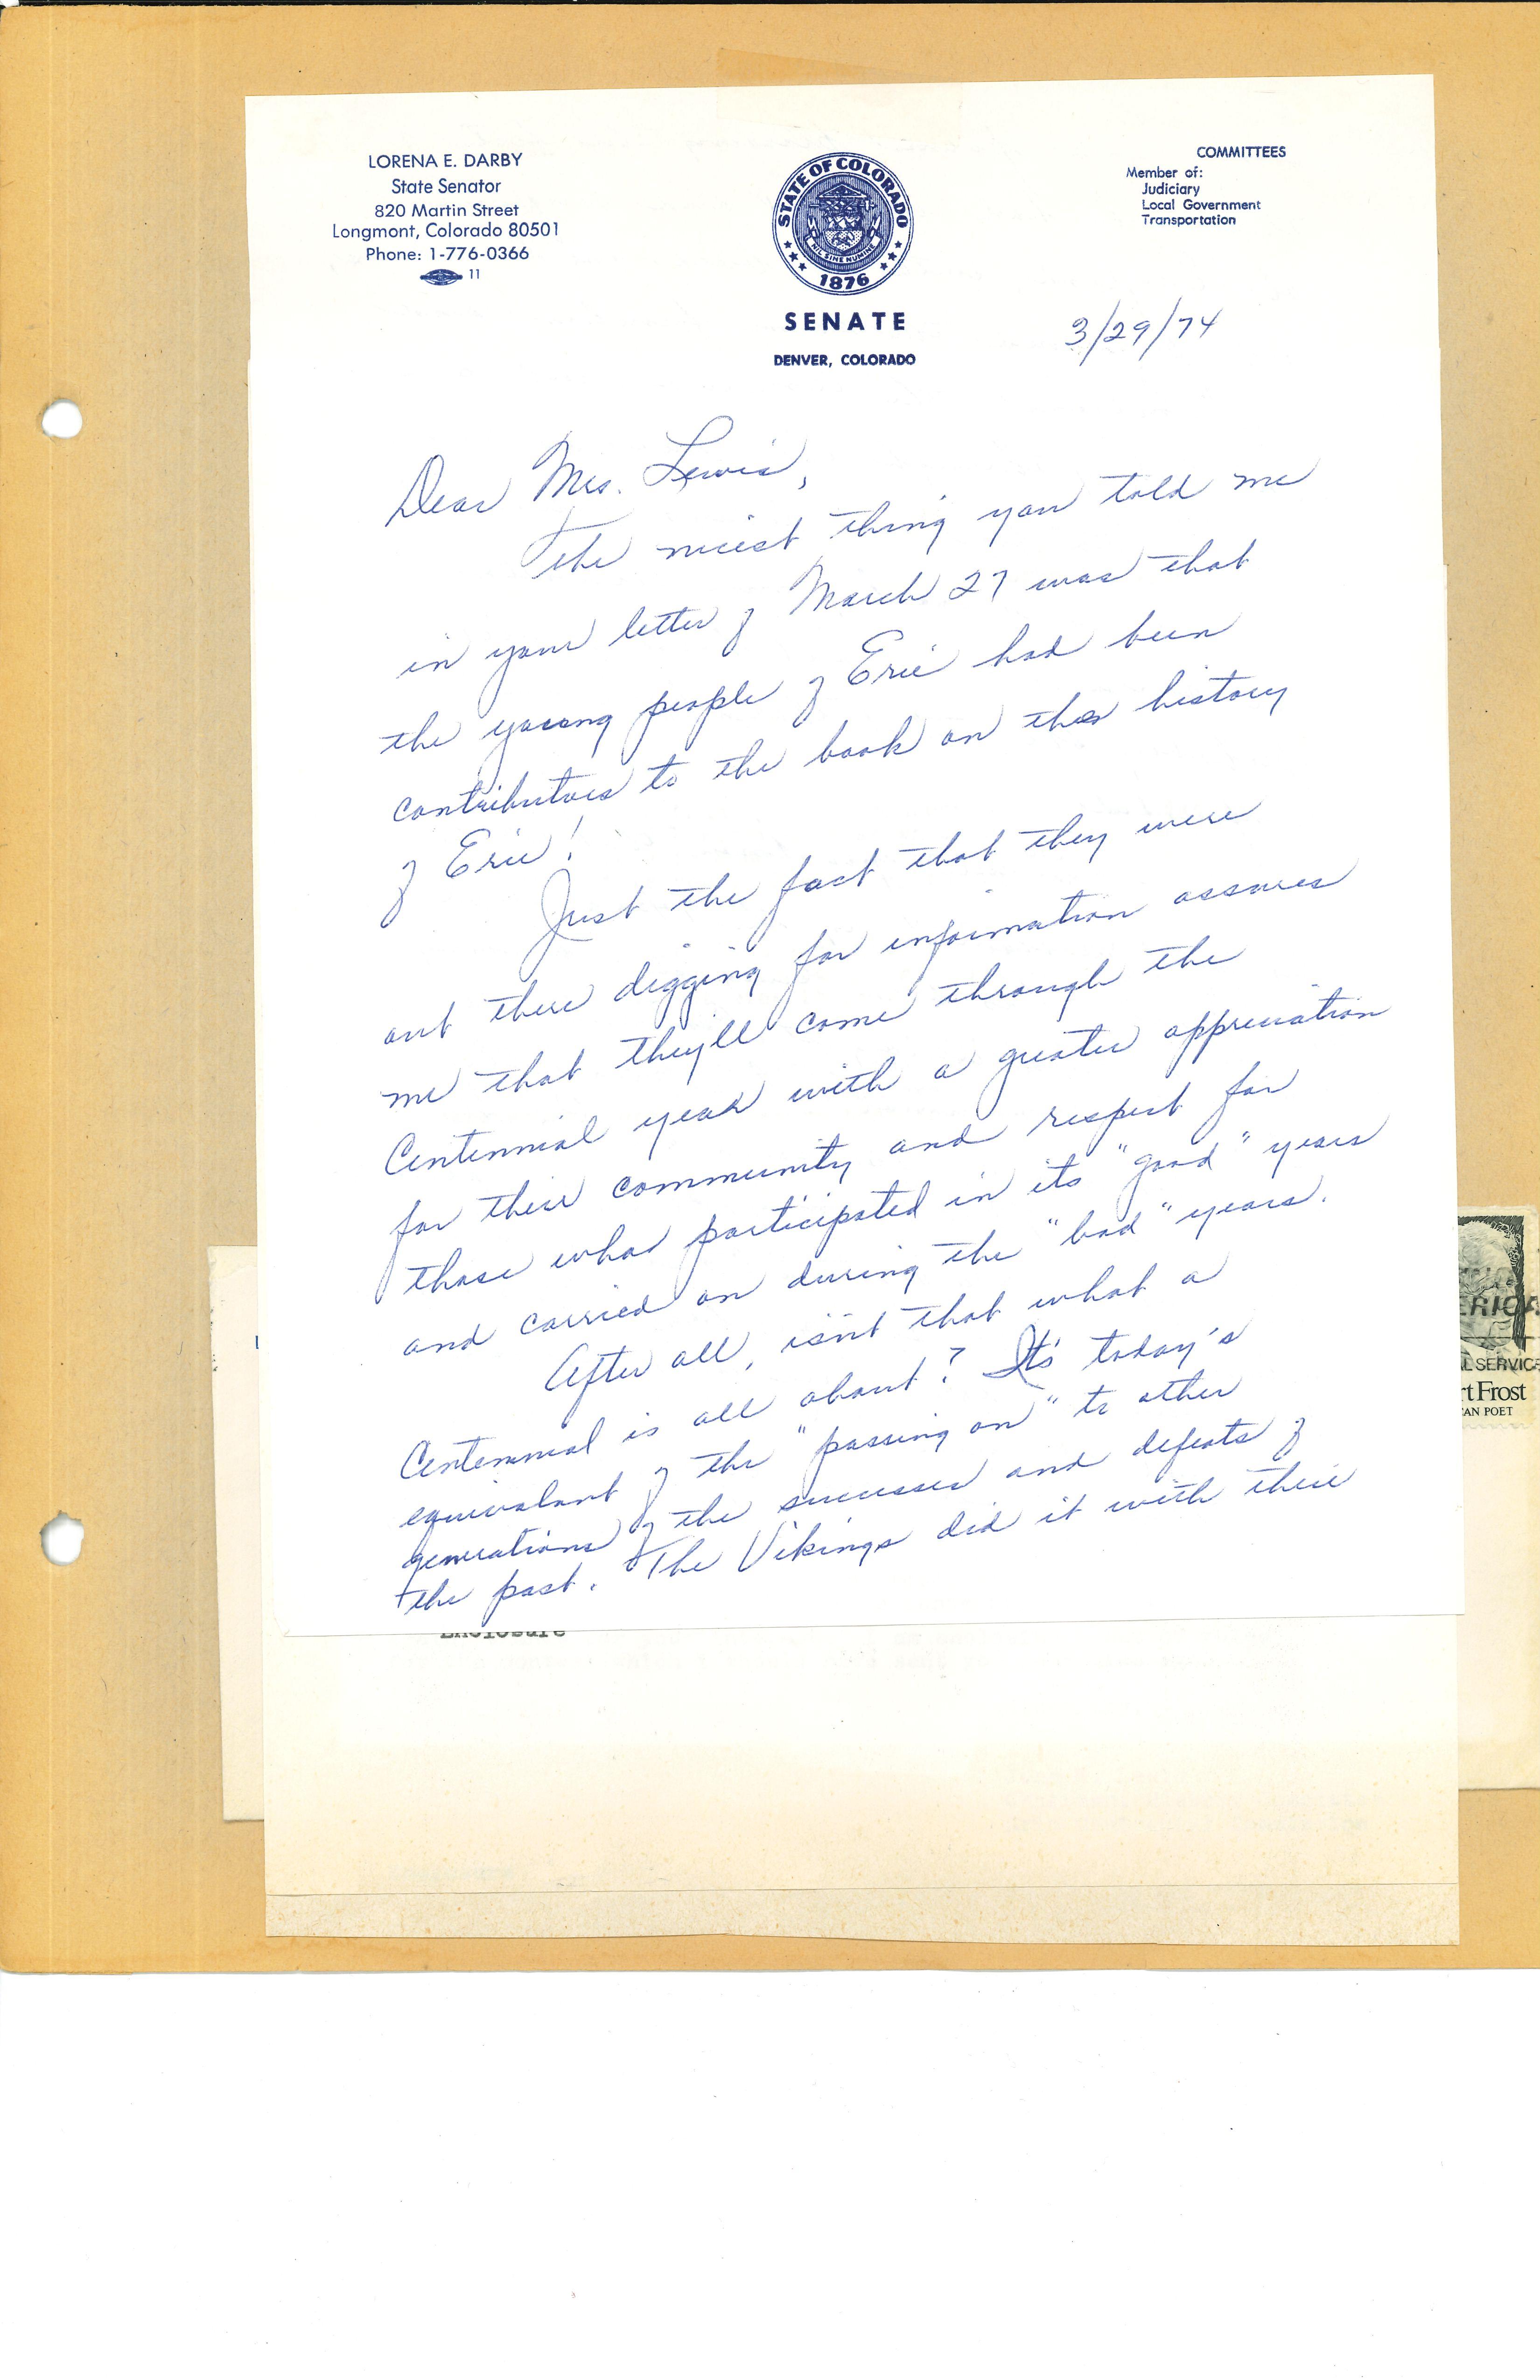 LORENA E. DARBY
State Senator
820 Martin Street
Longmont, Colorado 80501
Phone: 1-776-0366
11
STATE OF COLORADO
NIL SINE NUMINE
1876
SENATE
DENVER, COLORADO
COMMITTEES
Member of:
Judiciary
Local Government
Transportation
3/29/74
Dear Mrs. Lewis,
The nicest thing you told me
in your letter of March 27 was that
the young people of Erie had been
contributors to the book on the history
of Erie!
Just the fact that they were
out there digging for information assures
me that they'll come through the
Centennial year with a greater appreciation
for their community and respect for
those who participated in its "good" years
and carried on during the "bad" years.
After all, isn't that what a
Centennial is all about? It's today's
equivalant of the "passing on" to other
generations of the successes and defeats of
the past. The Vikings did it with their
Enclosure
ERICA
L SERVICE
rt Frost
AN POET